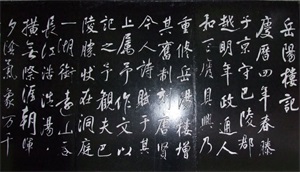 岳陽樓記
慶曆四年春滕
子京守巴陵郡
越明年政通人
和百廢具興乃
重修岳陽樓增
其舊制刻唐賢
今人詩賦于其
上屬予作文以
記之予觀夫巴
陵勝狀在洞庭
一湖銜遠山吞
長江浩浩湯湯
橫無際涯朝暉
夕陰氣象萬千